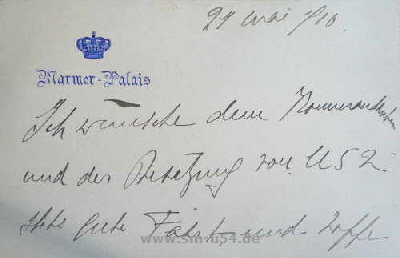 29 Mai 1916
Marmor-Palais
Ich wünsche dem Kommandanten
und der Besatzung von U 52
stets gute Fahrt und hoffe
www.sm-u54.de